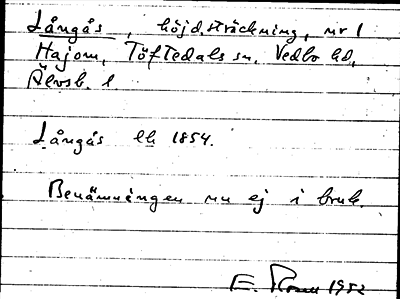 Långås, höjdsträckning, nr 1
Hajom, Töftedals sn, Vedbo hd,
Älvsb. l
Långås lh 1854.
Benämningen nu ej i bruk.
E. 1952